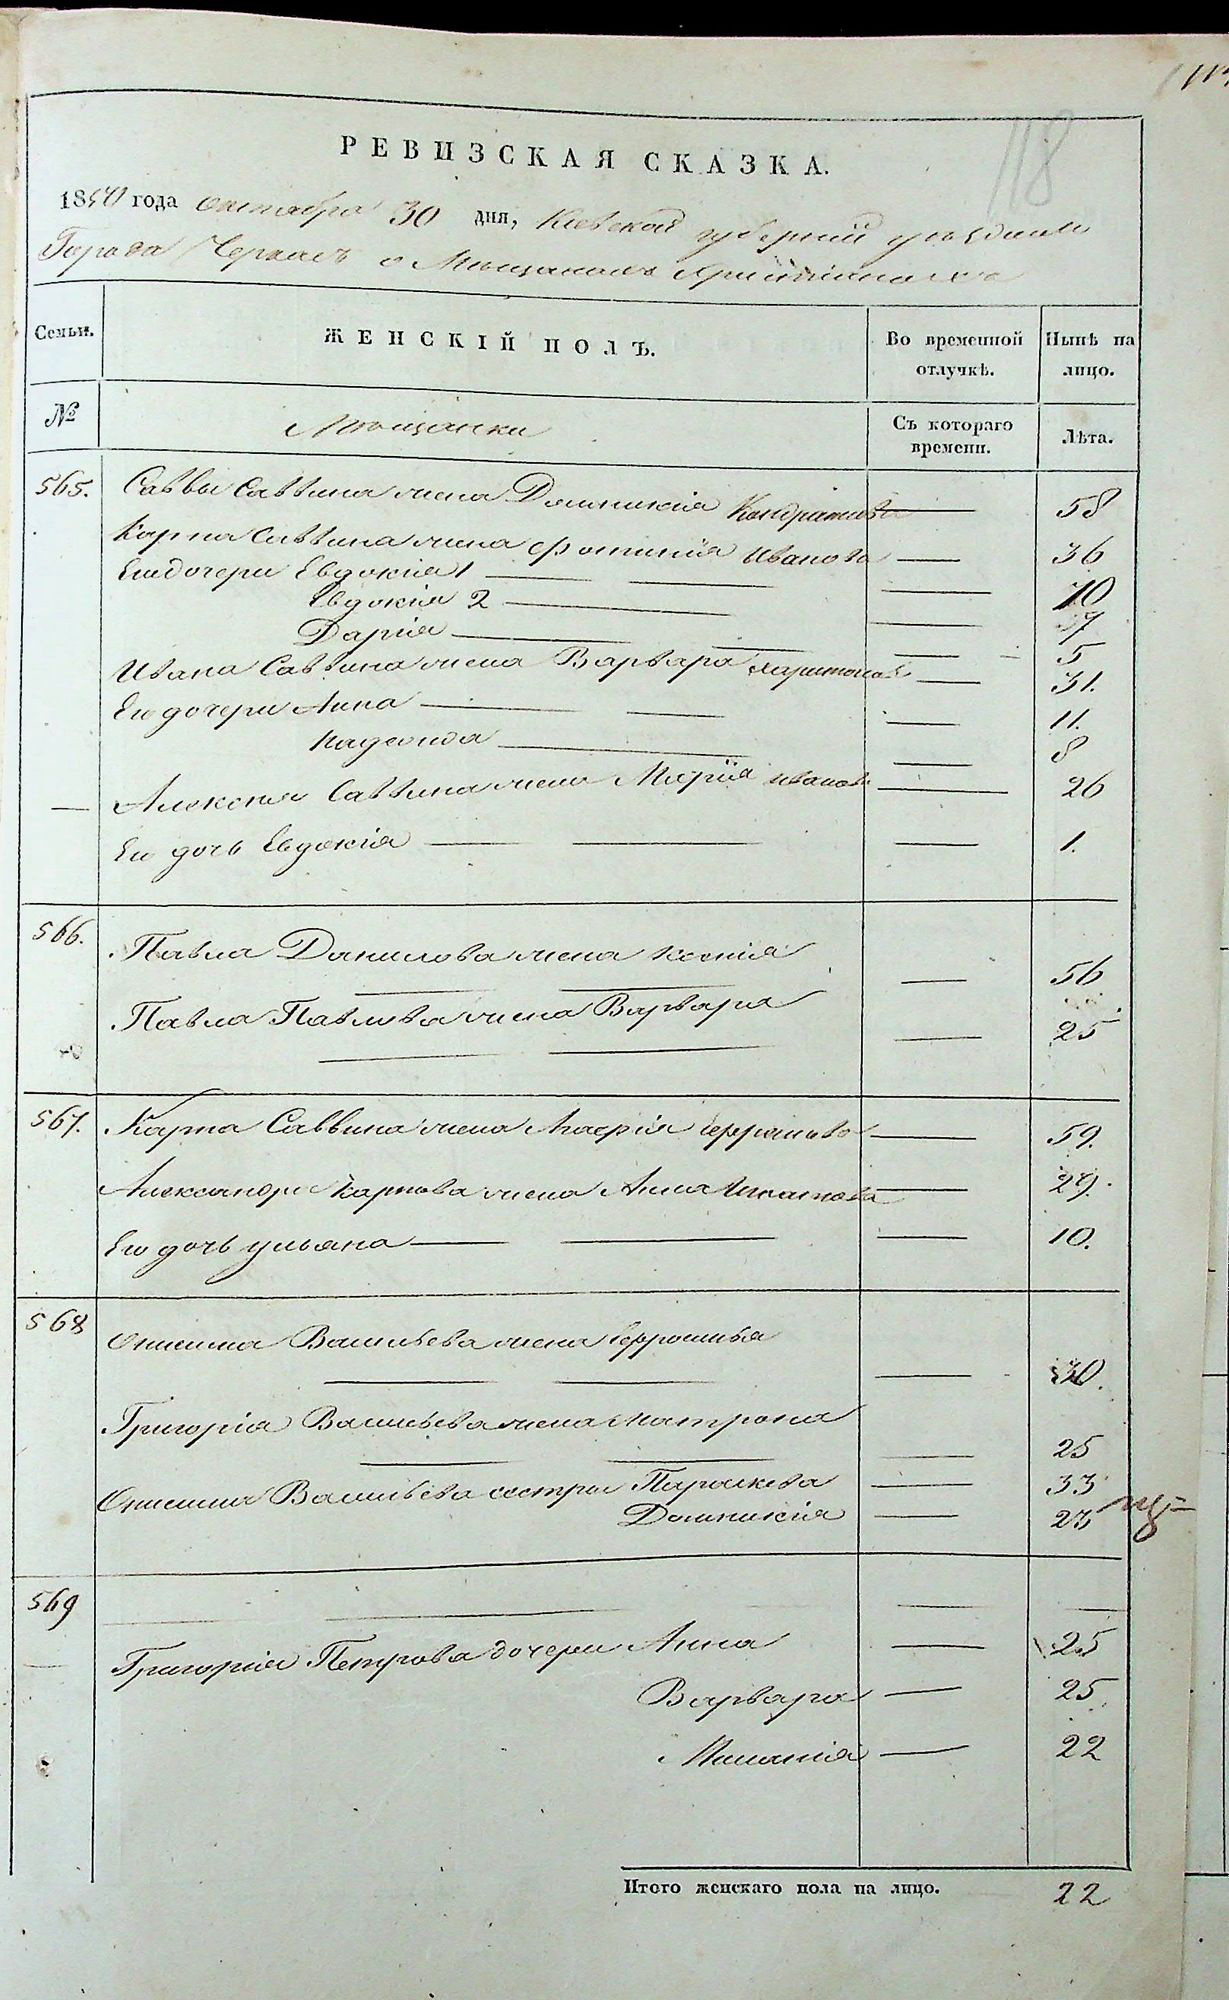 118
РЕВИЗСКАЯ СКАЗКА.
1850 года октября 30 дня, Киевской губернии уездном
Города Черкасъ о Мѣщанахъ Христіянахъ
Семьи.
ЖЕНСКІЙ ПОЛЪ.
Во временной отлучкѣ.
Нынѣ на лицо.
№
Мѣщанки
Съ котораго времени.
Лѣта.
565. Саввы Саввина жена Домникія Кондратьева 58
Карпа Саввина жена Фотинія Иванова 36
Его дочери Евдокія 1 10
Евдокія 2 7
Дарія 5
Ивана Саввина жена Варвара Харитонова 31.
Его дочери Анна 11.
Надежда 8
Алексея Саввина жена Марія Иванова 26
Его дочь Евдокія 1.
566. Павла Данилова жена Ксенія 56
Павла Павлова жена Варвара 25
567. Карпа Саввина жена Марія 59.
Александра Карпова жена Анна Игнатова 29.
Его дочь Ульяна 10.
568 Онисима Васильева жена Ефросинья 30.
Григорія Васильева жена Матрона 25
Онисима Васильева сестры Параскева 33
Домникія 23
569
Григорія Петрова дочери Анна 25
Варвара 25
Меланія 22
Итого женскаго пола на лицо. 22